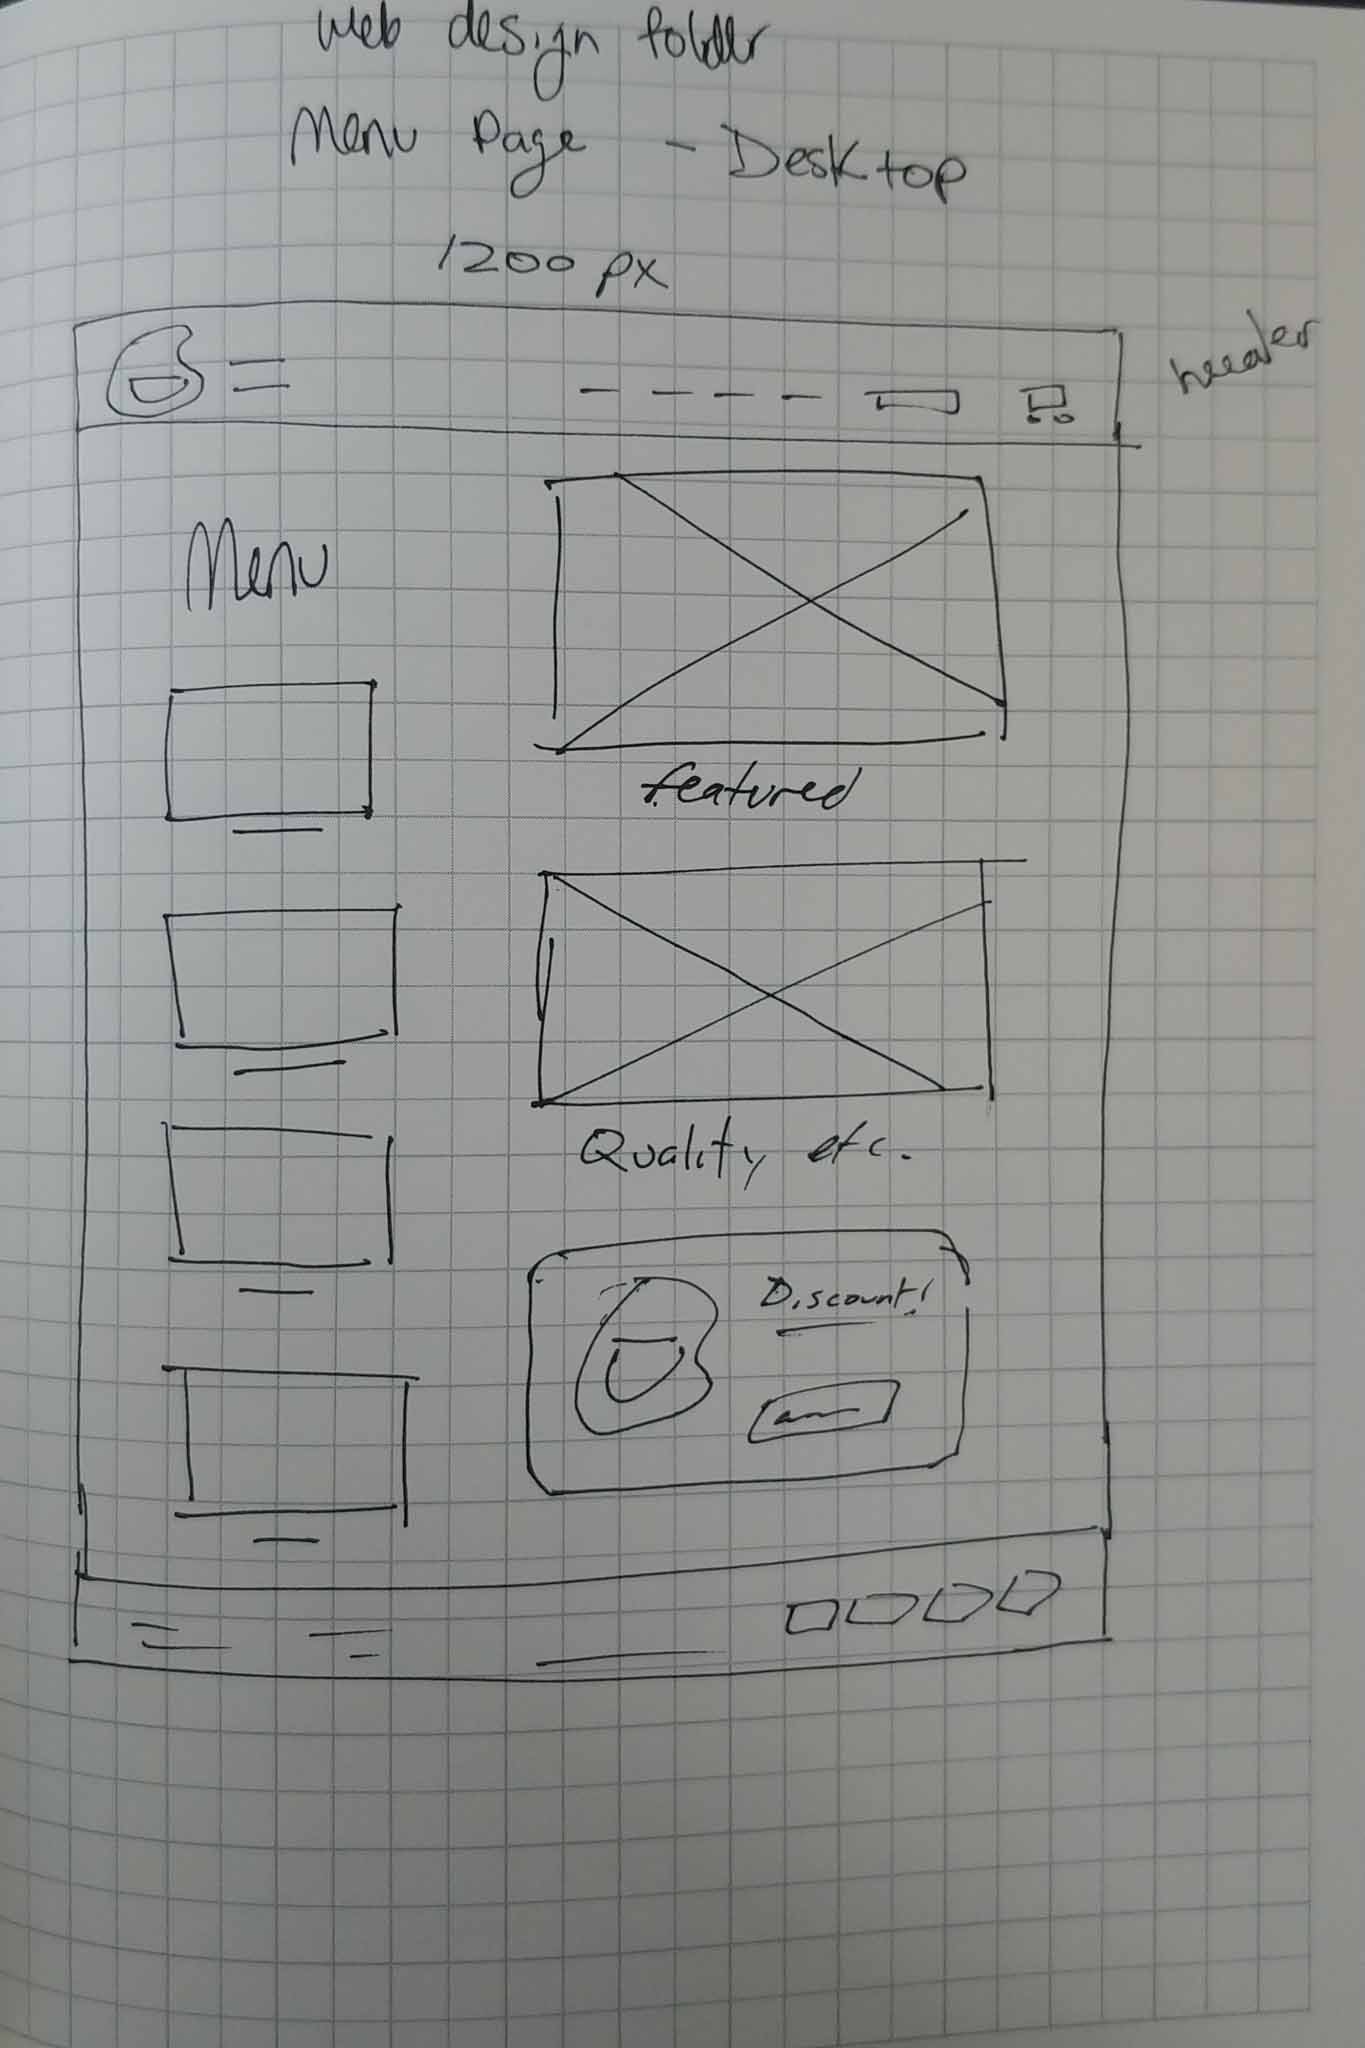 Web design folder
Menu Page - Desktop
1200 px
header
Menu
featured
Quality etc.
Discount!